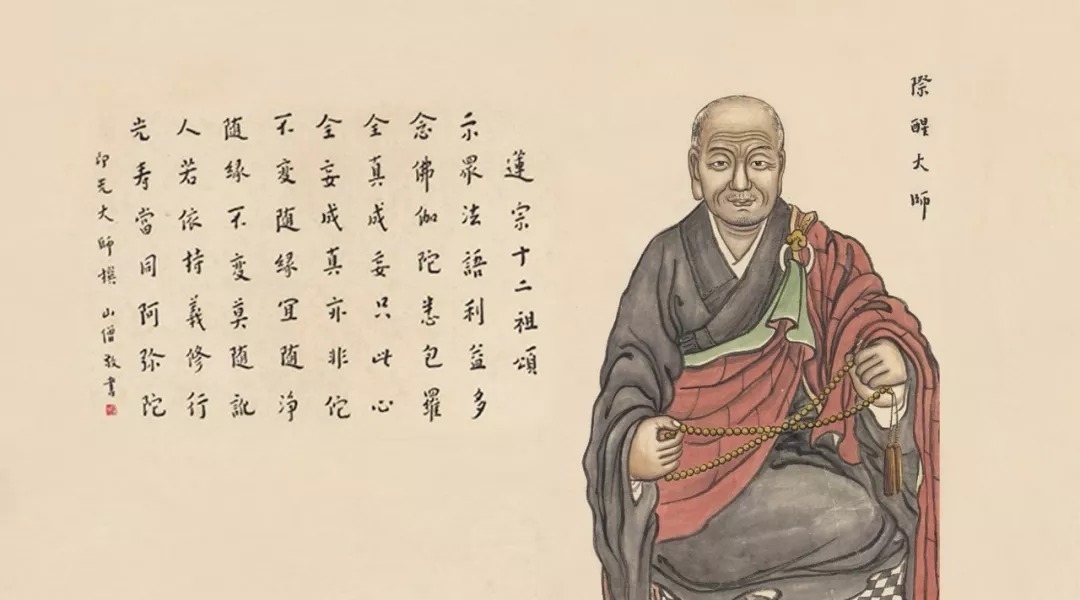 際醒大師
蓮宗十二祖頌
示眾法語利益多
念佛伽陀悉包羅
全真成妄只此心
全妄成真亦非佗
不变随緣冝随浄
随緣不变莫随訛
人若依持義修行
光寿當同阿弥陀
印光大師撰 山僧敬書